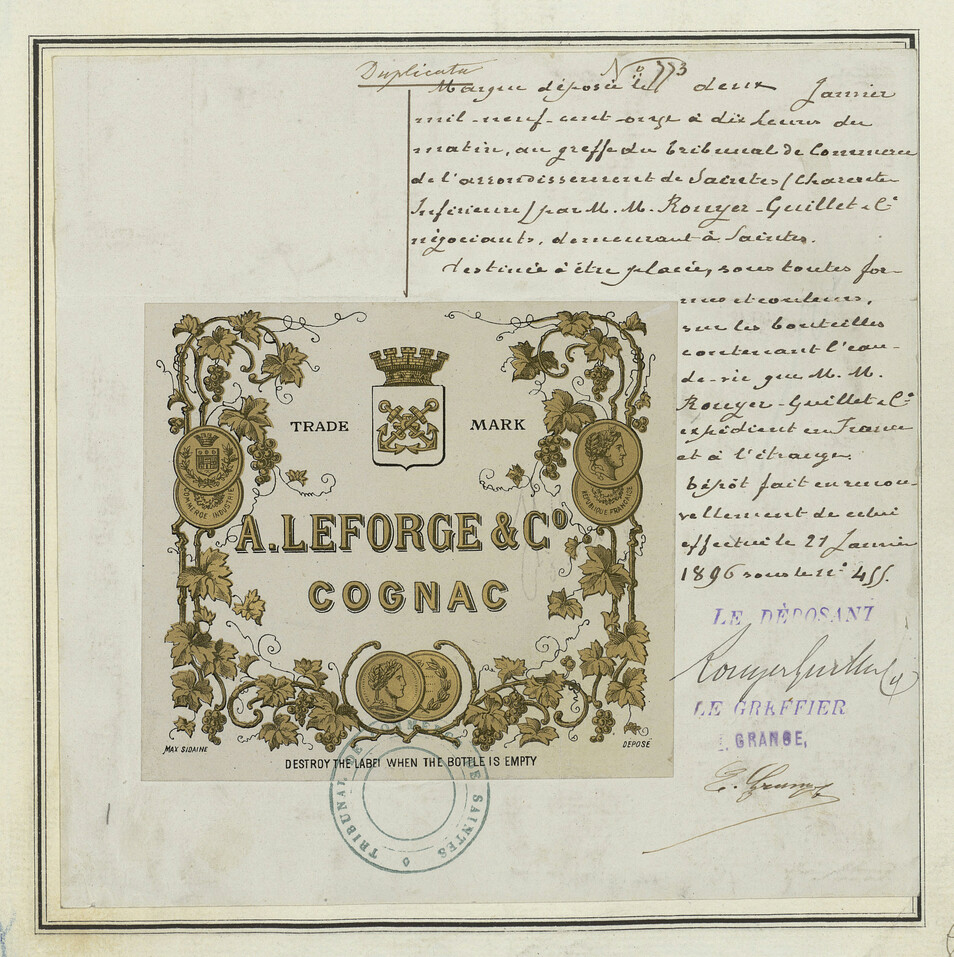 Duplicata
N° 773
Marque déposée le deux Janvier
mil-neuf-cent-onze à dix heures du
matin, au greffe du Tribunal de Commerce
de l'arrondissement de Saintes (Charente
Inférieure) par M. M. Rouyer-Guillet & Cie
négociants, demeurant à Saintes.
destinée à être placée, sous toutes for-
mes et couleurs,
sur les bouteilles
contenant l'eau-
de-vie que M. M.
Rouyer-Guillet & Cie
expédient en France
et à l'étranger.
Dépôt fait en renou-
vellement de celui
effectué le 21 Janvier
1896 sous le n° 455.
LE DÉPOSANT
Rouyer Guillet Cie
LE GREFFIER
GRANGE,
TRADE MARK
COMMERCE INDUSTRIE
RÉPUBLIQUE FRANÇAISE
A. LEFORGE & Cº
COGNAC
MAX SIDAINE
DEPOSÉ
DESTROY THE LABEL WHEN THE BOTTLE IS EMPTY
TRIBUNAL DE COMMERCE DE SAINTES